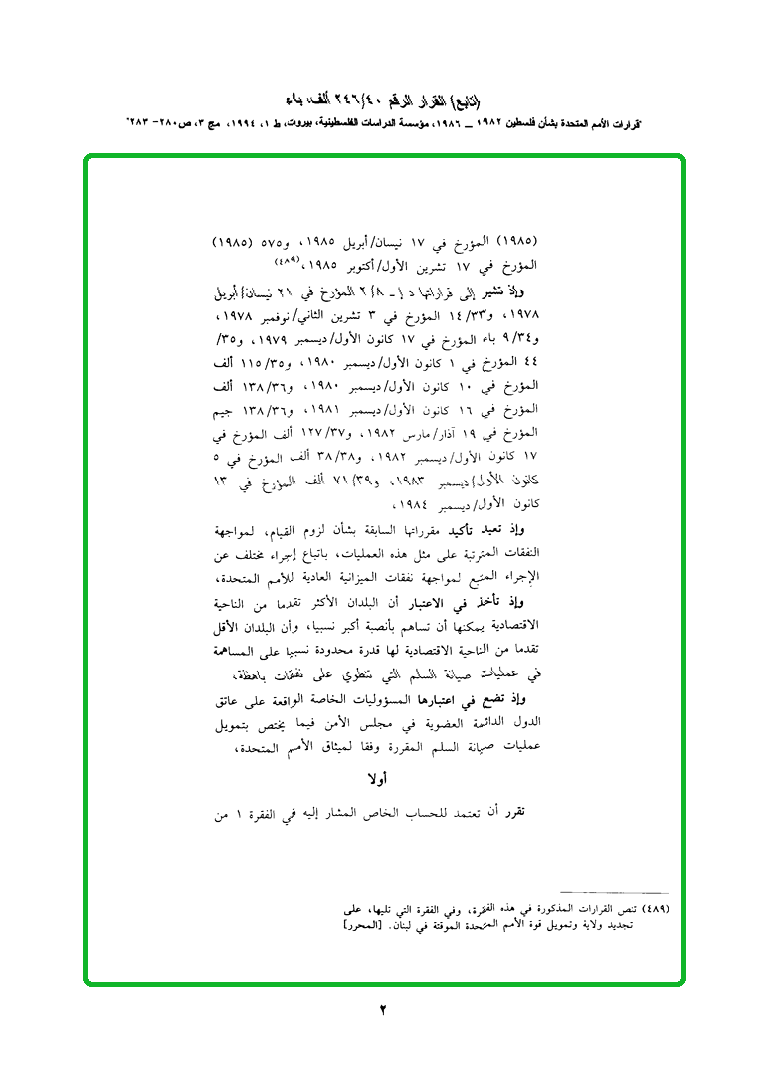 (تابع) القرار الرقم ٢٤٦/٤٠ ألف، باء
"قرارات الأمم المتحدة بشأن فلسطين ١٩٨٢ ـ ١٩٨٦، مؤسسة الدراسات الفلسطينية، بيروت، ط ١، ١٩٩٤، مج ٣، ص٢٨٠- ٢٨٣"
(١٩٨٥) المؤرخ في ١٧ نيسان/أبريل ١٩٨٥، و٥٧٥ (١٩٨٥)
المؤرخ في ١٧ تشرين الأول/أكتوبر ١٩٨٥،(٤٨٩)
وإذ تشير إلى قراراتها د إ ـ ٢/٨ المؤرخ في ٢١ نيسان/أبريل
١٩٧٨، و١٤/٣٣ المؤرخ في ٣ تشرين الثاني/نوفمبر ١٩٧٨،
و٩/٣٤ باء المؤرخ في ١٧ كانون الأول/ديسمبر ١٩٧٩، و٣٥/
٤٤ المؤرخ في ١ كانون الأول/ديسمبر ١٩٨٠، و١١٥/٣٥ ألف
المؤرخ في ١٠ كانون الأول/ديسمبر ١٩٨٠، و١٣٨/٣٦ ألف
المؤرخ في ١٦ كانون الأول/ديسمبر ١٩٨١، و١٣٨/٣٦ جيم
المؤرخ في ١٩ آذار/مارس ١٩٨٢، و١٢٧/٣٧ ألف المؤرخ في
١٧ كانون الأول/ديسمبر ١٩٨٢، و٣٨/٣٨ ألف المؤرخ في ٥
كانون الأول/ديسمبر ١٩٨٣، و٧١/٣٩ ألف المؤرخ في ١٣
كانون الأول/ديسمبر ١٩٨٤،
وإذ تعيد تأكيد مقرراتها السابقة بشأن لزوم القيام، لمواجهة
النفقات المترتبة على مثل هذه العمليات، باتباع إجراء مختلف عن
الإجراء المتبع لمواجهة نفقات الميزانية العادية للأمم المتحدة،
وإذ تأخذ في الاعتبار أن البلدان الأكثر تقدما من الناحية
الاقتصادية يمكنها أن تساهم بأنصبة أكبر نسبيا، وأن البلدان الأقل
تقدما من الناحية الاقتصادية لها قدرة محدودة نسبيا على المساهمة
في عمليات صيانة السلم التي تنطوي على نفقات باهظة،
وإذ تضع في اعتبارها المسؤوليات الخاصة الواقعة على عاتق
الدول الدائمة العضوية في مجلس الأمن فيما يختص بتمويل
عمليات صيانة السلم المقررة وفقا لميثاق الأمم المتحدة،
أولا
تقرر أن تعتمد للحساب الخاص المشار إليه في الفقرة ١ من
(٤٨٩) تنص القرارات المذكورة في هذه الفقرة، وفي الفقرة التي تليها، على
تجديد ولاية وتمويل قوة الأمم المتحدة الموقتة في لبنان. [المحرر]
٢